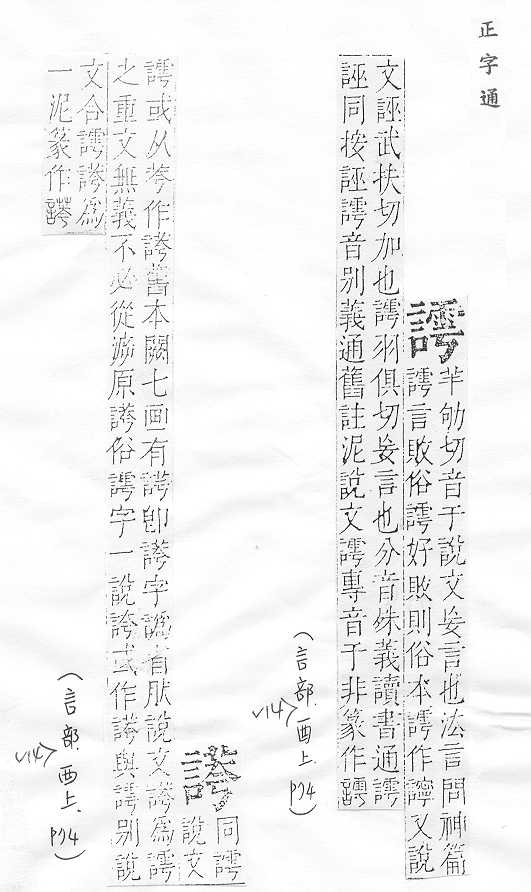 正字通
謣
羊劬切音于說文妄言也法言問神篇
謣言敗俗謣好敗則俗本謣作又說
文誣武扶切加也謣羽俱切妄言也分音殊義讀書通謣
誣同按誣謣音別義通舊註泥說文謣專音于非篆作謣
(言部酉上. P74)
v14>
同謣
說文
謣或从荂作舊本闕七画有即字譌省朕說文為謣
之重文無義不必從泝原俗謣字一說誇或作與謣别說
文合謣為
一泥篆作
(言部酉上. P74)
v14>